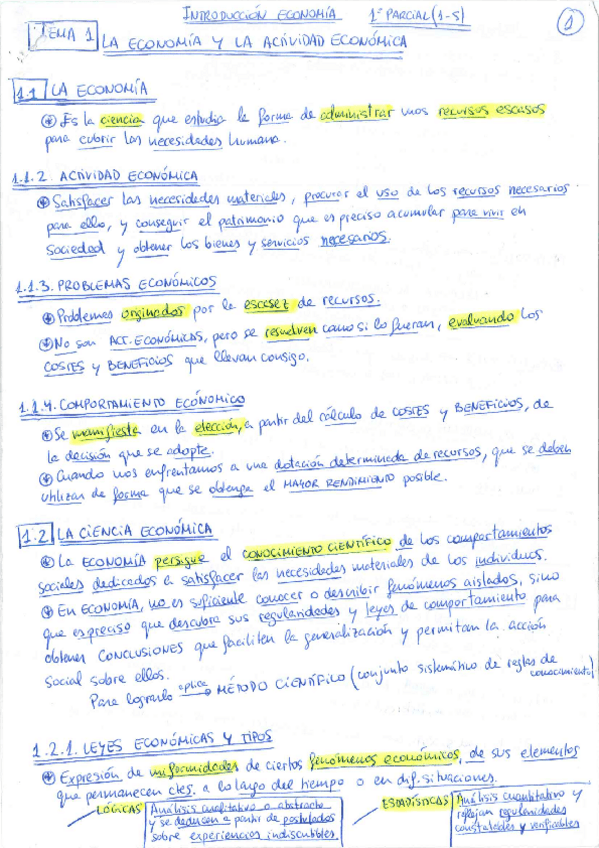 INTRODUCCIÓN ECONOMÍA 1º PARCIAL (1-5)
1
TEMA 1 LA ECONOMÍA Y LA ACTIVIDAD ECONÓMICA
1.1 LA ECONOMÍA
Es la ciencia que estudia la forma de administrar unos recursos escasos
para cubrir las necesidades humana.
1.1.2. ACTIVIDAD ECONÓMICA
Satisfacer las necesidades materiales, procurar el uso de los recursos necesarios
para ello, y conseguir el patrimonio que es preciso acumular para vivir en
sociedad y obtener los bienes y servicios necesarios.
1.1.3. PROBLEMAS ECONÓMICOS
Problemas originados por la escasez de recursos.
No son ACT. ECONÓMICAS, pero se resuelven como si lo fueran, evaluando los
COSTES y BENEFICIOS que llevan consigo.
1.1.4. COMPORTAMIENTO ECÓNOMICO
Se manifiesta en la elección, a partir del cálculo de COSTES y BENEFICIOS, de
la decisión que se adopte.
Cuando nos enfrentamos a una dotación determinada de recursos, que se deben
utilizar de forma que se obtenga el MAYOR RENDIMIENTO posible.
1.2 LA CIENCIA ECONÓMICA
La ECONOMÍA persigue el CONOCIMIENTO CIENTÍFICO de los comportamientos
sociales dedicados a satisfacer las necesidades materiales de los individuos.
En ECONOMÍA, no es suficiente conocer o describir fenómenos aislados, sino
que es preciso que descubra sus regularidades y leyes de comportamiento para
obtener CONCLUSIONES que faciliten la generalización y permitan la acción
social sobre ellos.
Para lograrlo aplica → MÉTODO CIENTÍFICO (conjunto sistemático de reglas de
conocimiento)
1.2.1. LEYES ECONÓMICAS Y TIPOS
Expresión de uniformidades de ciertos fenómenos económicos, de sus elementos
que permanecen ctes. a lo largo del tiempo o en dif. situaciones.
LÓGICAS Análisis cualitativo o abstracto
y se deducen a partir de postulados
sobre experiencias indiscutibles
ESTADÍSTICAS Análisis cuantitativo y
reflejan regularidades
constatables y verificables